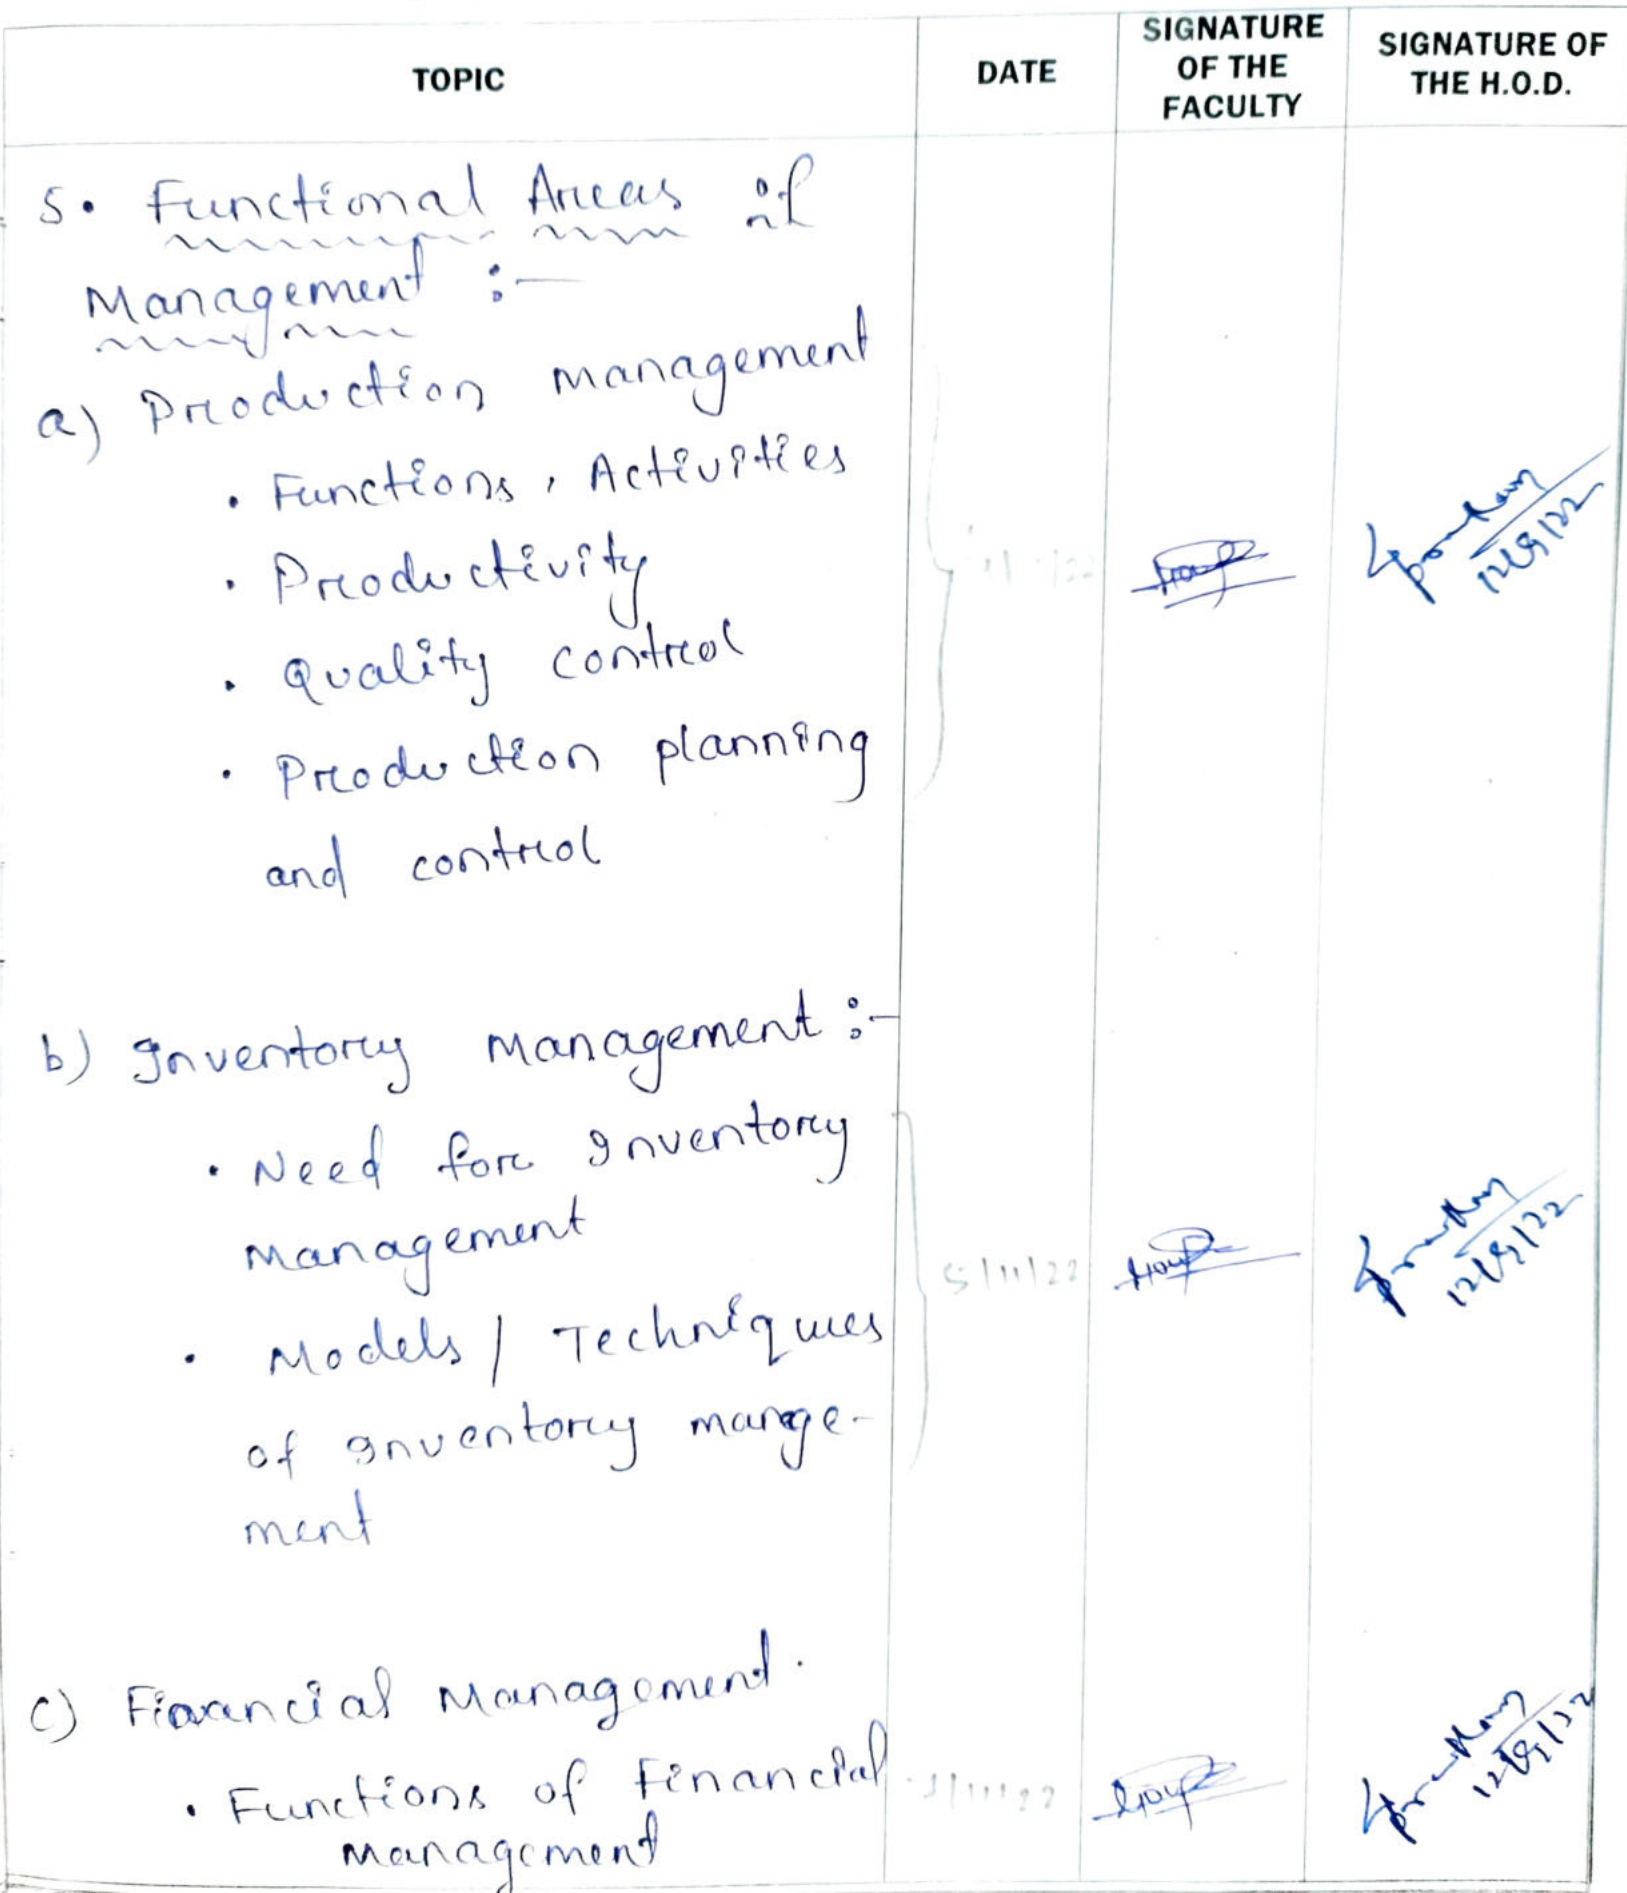 TOPIC
DATE
SIGNATURE
OF THE
FACULTY
SIGNATURE OF
THE H.O.D.
5. Functional Areas of
Management :-
a) Production management
• Functions, Activities
• Productivity
• Quality control
• Production planning
and control
b) Inventory Management :-
• Need for Inventory
Management
• Models / Techniques
of Inventory mange-
ment
5/11/22
c) Financial Management.
• Functions of Financial
Management